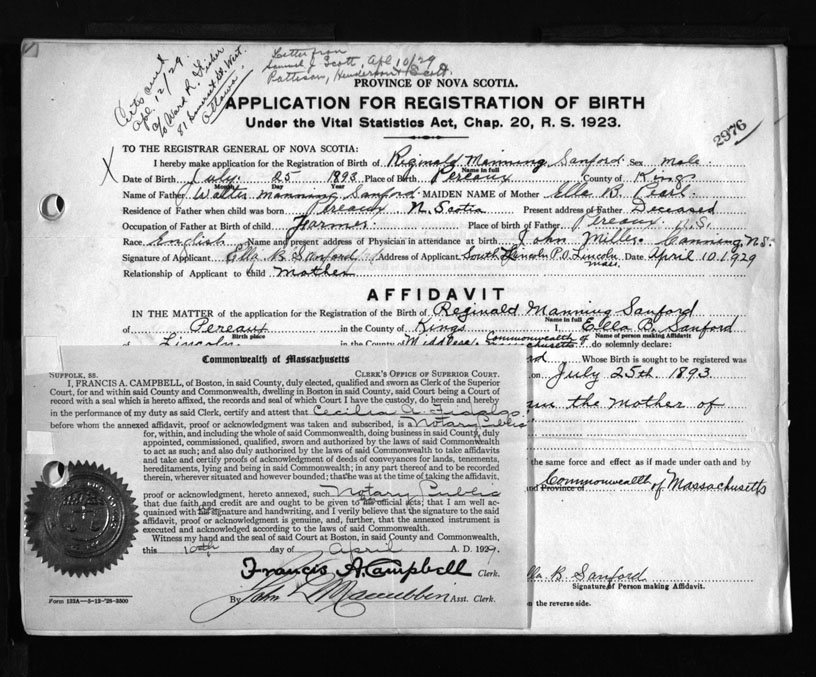 Certs sent
Apl. 12/29.
c/o Ward R. Fisher
81 Somerset St West.
Ottawa.
Letter from
Samuel J. Scott, Apl 10/29
Pattison, Henderson & Scott.
PROVINCE OF NOVA SCOTIA.
APPLICATION FOR REGISTRATION OF BIRTH
Under the Vital Statistics Act, Chap. 20, R. S. 1923.
2976
X TO THE REGISTRAR GENERAL OF NOVA SCOTIA:
I hereby make application for the Registration of Birth of Reginald Manning Sanford Sex male
Name in full
Date of Birth July 25 1893 Place of Birth Pereaux County of Kings
Month Day Year
Name of Father Walter Manning Sanford MAIDEN NAME of Mother Ella B. Pearl.
Residence of Father when child was born Pereaux N. Scotia Present address of Father Deceased
Occupation of Father at Birth of child Farmer Place of birth of Father Pereaux N.S.
Race English Name and present address of Physician in attendance at birth John Miller Canning N.S.
Signature of Applicant Ella B Sanford Address of Applicant South Lincoln P.O. Lincoln Mass. Date April 10, 1929
Relationship of Applicant to child Mother
AFFIDAVIT
IN THE MATTER of the application for the Registration of the Birth of Reginald Manning Sanford
Name in full
of Pereaux in the County of Kings I, Ella B. Sanford
Birth place Name of person making Affidavit
of Lincoln in the County of Middlesex Commonwealth of Massachusetts do solemnly declare:
Whose Birth is sought to be registered was
on July 25th 1893
am the Mother of
the same force and effect as if made under oath and by
and Province of Commonwealth of Massachusetts
Ella B Sanford
Signature of Person making Affidavit.
on the reverse side.
Commonwealth of Massachusetts
SUFFOLK, SS. CLERK'S OFFICE OF SUPERIOR COURT.
I, FRANCIS A. CAMPBELL, of Boston, in said County, duly elected, qualified and sworn as Clerk of the Superior
Court, for and within said County and Commonwealth, dwelling in Boston in said County, said Court being a Court of
record with a seal which is hereto affixed, the records and seal of which Court I have the custody, do herein and hereby
in the performance of my duty as said Clerk, certify and attest that Cecilia A.
before whom the annexed affidavit, proof or acknowledgment was taken and subscribed, is a Notary Public
for, within, and including the whole of said Commonwealth, doing business in said County, duly
appointed, commissioned, qualified, sworn and authorized by the laws of said Commonwealth
to act as such; and also duly authorized by the laws of said Commonwealth to take affidavits
and take and certify proofs of acknowledgments of deeds of conveyances for lands, tenements,
hereditaments, lying and being in said Commonwealth; in any part thereof and to be recorded
therein, wherever situated and however bounded; that she was at the time of taking the affidavit,
proof or acknowledgment, hereto annexed, such Notary Public
that due faith and credit are and ought to be given to her official acts; that I am well ac-
quainted with her signature and handwriting, and I verily believe that the signature to the said
affidavit, proof or acknowledgment is genuine, and, further, that the annexed instrument is
executed and acknowledged according to the laws of said Commonwealth.
Witness my hand and the seal of said Court at Boston, in said County and Commonwealth,
this 10th day of April A. D. 1929.
Francis A. Campbell Clerk.
By John L. Macubbin Asst. Clerk.
Form 133A—5-12-'28-3500